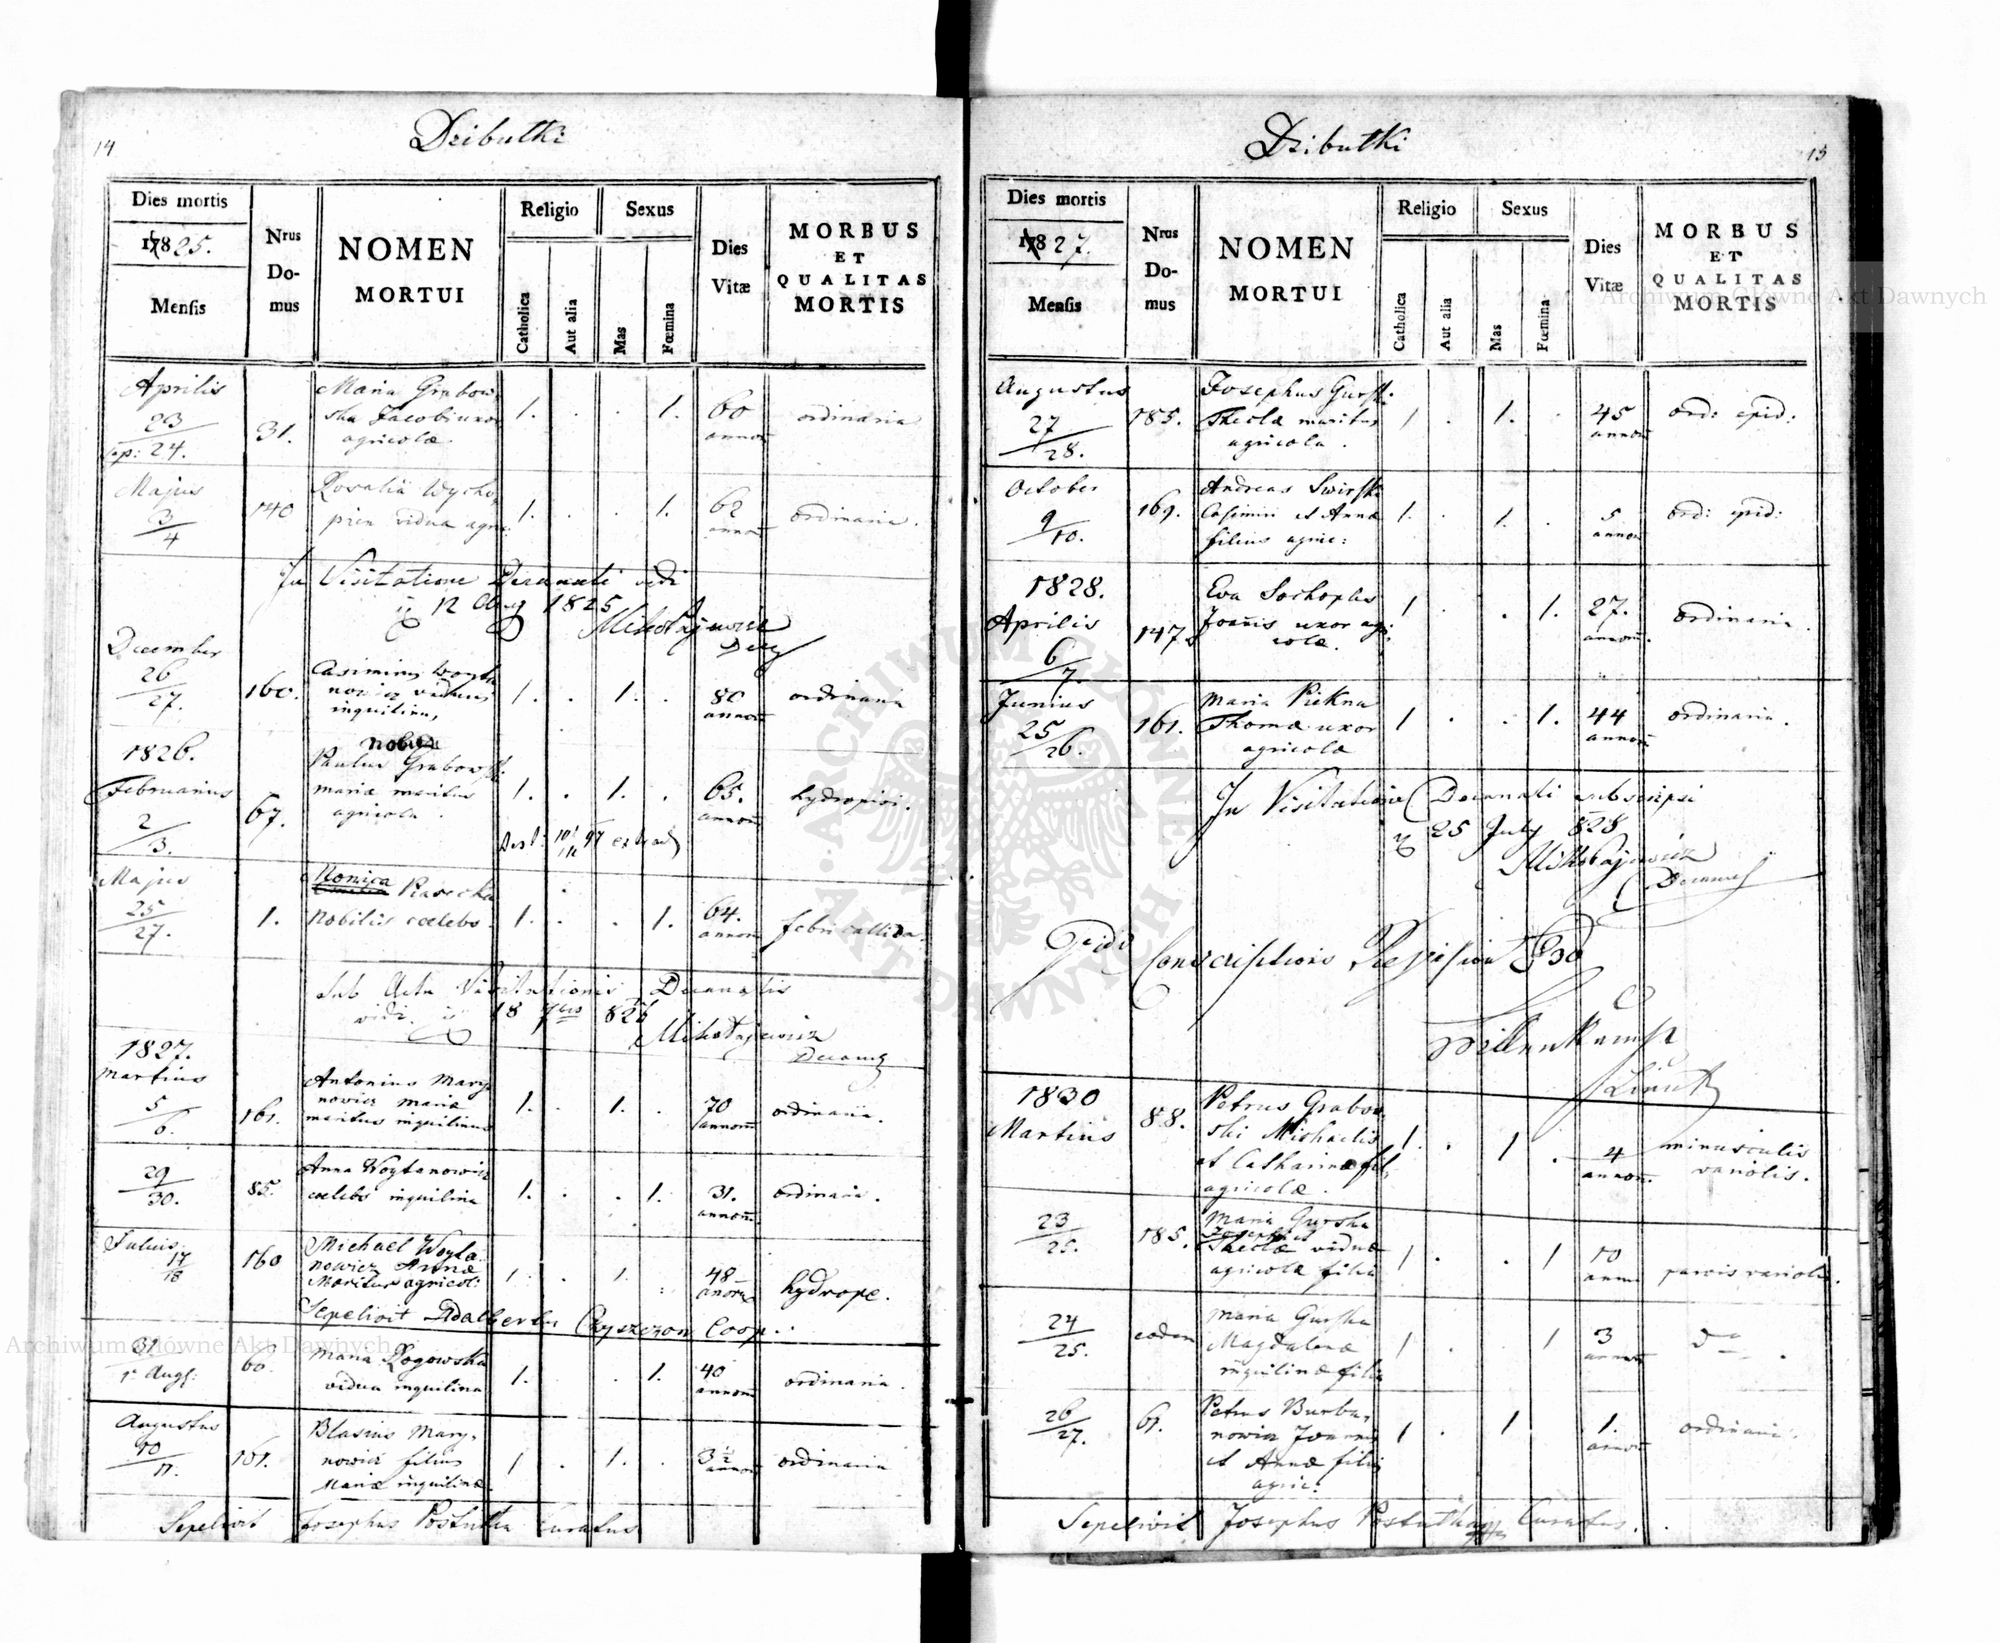 14
Dzibulki
Dies mortis
1825.
Mensis
Nrus
Do-
mus
NOMEN
MORTUI
Religio
Catholica
Aut alia
Sexus
Mas
Fœmina
Dies
Vitæ
MORBUS
ET
QUALITAS
MORTIS
Aprilis
23
24.
31.
Maria Grabow
ska Jacobi uxor
agricolæ
1. . . 1.
60
annorum
ordinaria
Majus
3
4
140
Rosalia
vidua agric:
1. . . 1.
62
annorum
ordinaria.
In Visitatione Decanali vidi
12 Aug 1825
Mikołajewicz
December
26
27.
160.
Casimirus Woyta
nowicz viduus
inquilinus
1. . 1. .
80
annorum
ordinaria
1826.
Februarius
2
3.
67.
Nobilis
Paulus Grabowski
Mariæ maritus
agricola.
1. . 1. .
65.
annorum
hydropisi.
Majus
25
27.
1.
Monica Piasecka
Nobilis cælebs.
1. . . 1.
64.
annorum
febri callida.
Sub Actu Visitationis Decanalis
vidi 18 7bris 826
Mikołajewicz
Decanus
1827.
Martius
5
6.
161.
Antonius Mary
nowicz Mariæ
maritus inquilinus
1. . 1. .
70
annorum
ordinaria.
29
30.
85.
Anna Woytanowicz
cælebs inquilina
1. . . 1.
31.
annorum
ordinaria.
Julius
17
18
160
Michael Woyta
nowicz Annæ
Maritus agricol:
1. . 1. .
48
annorum
hydrope.
Sepelivit Adalbertus Czyszczon Coop.
31
1 Augs:
60.
Maria Rogowska
vidua inquilina
1. . . 1.
40
annorum
ordinaria.
Augustus
10
11.
161.
Blasius Mary,
nowicz filius
Mariæ inquilinæ.
1 . 1. .
3½
annorum
ordinaria
Sepelivit Josephus Curatus
15
Dzibulki
Dies mortis
1827.
Mensis
Nrus
Do-
mus
NOMEN
MORTUI
Religio
Catholica
Aut alia
Sexus
Mas
Fœmina
Dies
Vitæ
MORBUS
ET
QUALITAS
MORTIS
Augustus
27
28.
185.
Josephus Gurski
Theclæ maritus
agricola.
1 . 1. .
45
annorum
ord: epid:
October
9
10.
169.
Andreas Swirski
Casimiri et Annæ
filius agric:
1. . 1. .
5
annorum
ord: epid:
1828.
Aprilis
6
7.
147
Eva Sochopla
Joannis uxor agri
colæ.
1 . . 1.
27.
annorum.
ordinaria.
Junius
25
26.
161.
Maria Piekna
Thomæ uxor
agricolæ
1 . . 1.
44
annorum
ordinaria.
In Visitatione Decanali subscripsi
25 July 828
Mikołajewicz
Decanus
Conscriptions Revision 830
1830
Martius
88.
Petrus Grabow
ski Michaelis
et Catharinæ fil,
agricolæ.
1. . 1 .
4
annorum.
minusculis
variolis.
23
25.
185.
Maria Gurska
Josephi et
Theclæ viduæ
agricolæ filia
1 . . 1
10
annor
parvis variolis.
24
25.
eodem
Maria Gurska
Magdalenæ
inquilinæ filia
1 . . 1
3
annorum
26
27.
61.
Petrus Burba,
nowicz Joannis
et Annæ filius
agric:
1 . 1
1.
annor
ordinaria.
Sepelivit Josephus Curatus.
Archiwum Główne Akt Dawnych
Archiwum Główne Akt Dawnych
ARCHIWUM GŁÓWNE AKT DAWNYCH